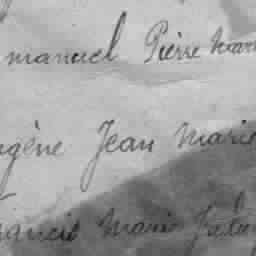 manuel Pierre Mari
gène Jean Marie
rancis Marie